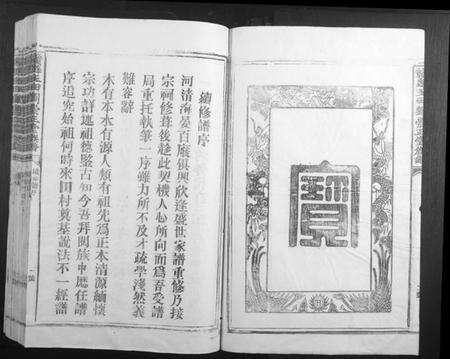 寶
續修譜序
河清海晏百廢俱興欣逢盛世家譜重修乃接
宗祠修葺後趁此契機人心所向而為吾受譜
局重托執筆一序雖力所不及才疏學淺然義
難容辭
木有本水有源人類有祖先為正本清源緬懷
宗功詳述祖德鑒古知今吾拜閱族中歷任譜
序追究始祖何時來田村奠基說法不一經譜